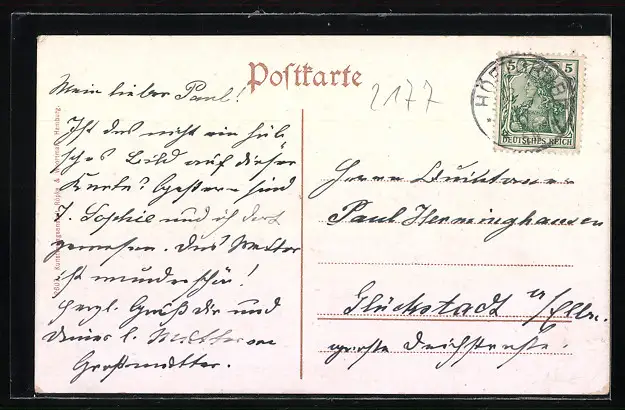 Postkarte
2177
5 5
DEUTSCHES REICH
Mein lieber Paul!
Ist das nicht ein hüb
sches Bild auf dieser
Karte? Gestern sind
T. Sophie und ich dort
gewesen. Das Wetter
ist wunderschön!
Herzl. Gruß dir und
deiner l. Mutter von
Großmutter.
Herrn
Paul Herminghausen
Glückstadt a/Elbe.
große Deichstraße.